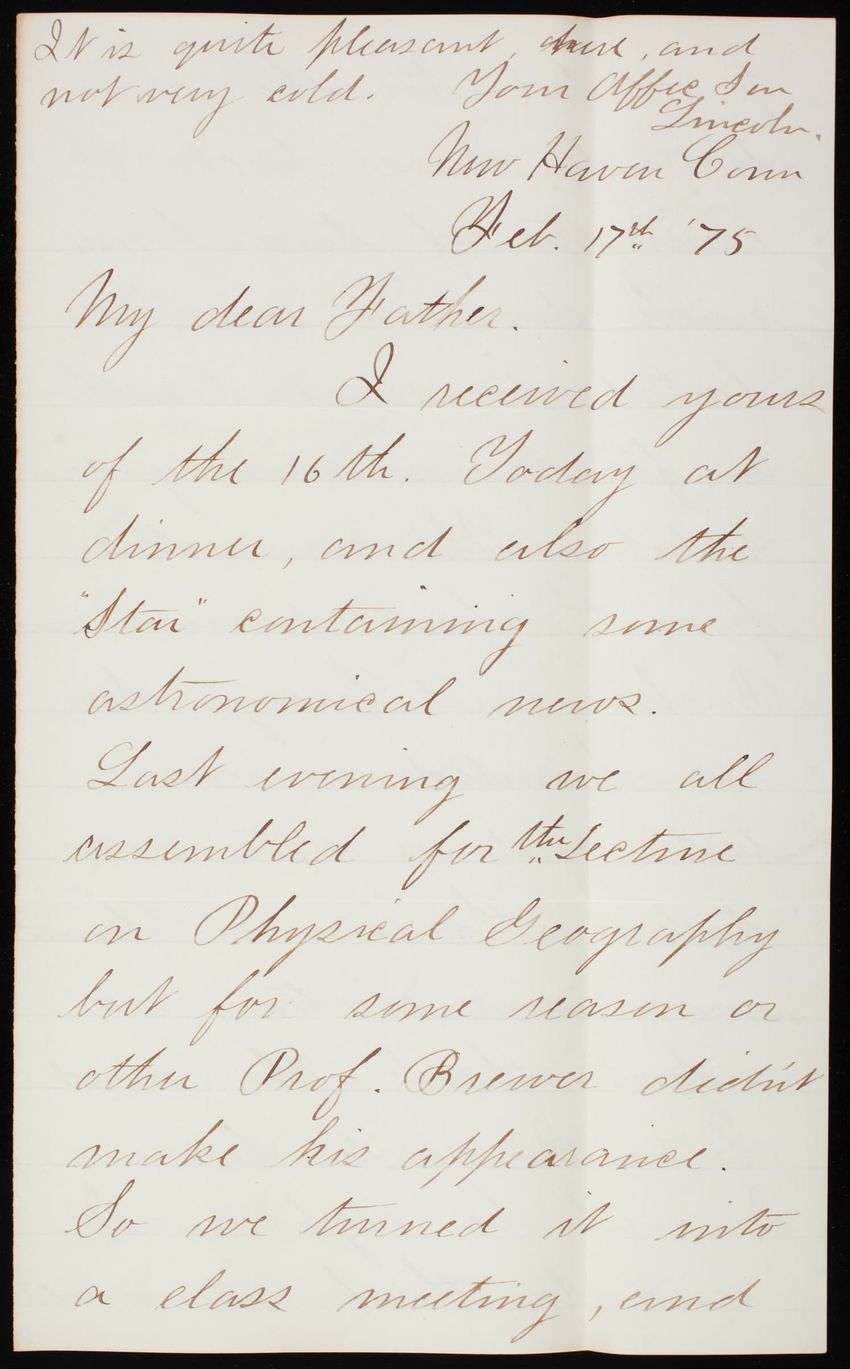 It is quite pleasant, here, and
not very cold. Your Affec Son
Lincoln.
New Haven Conn
Feb. 17th '75
My dear Father.
I received yours
of the 16th. Today at
dinner, and also the
"Star" containing some
astronomical news.
Last evening we all
assembled for the Lecture
on Physical Geography
but for some reason or
other Prof. Brewer did'nt
make his appearance.
So we turned it into
a class meeting, and